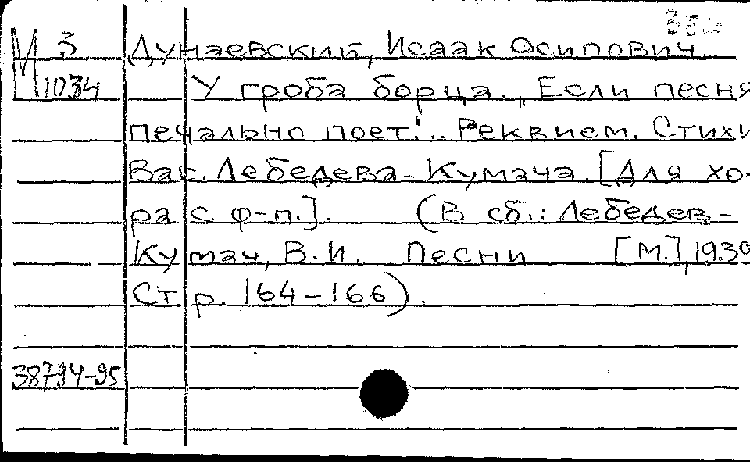 М 3 Дунаевский, Исаак Осипович
1034 У гроба борца. "Если песня
печально поет"... Реквием. Стихи
Вас. Лебедева-Кумача. [Для хо-
ра с ф-п.]. (В сб.: Лебедев-
Кумач, В.И. Песни [М.], 1939
Стр. 164-166).
38794-95